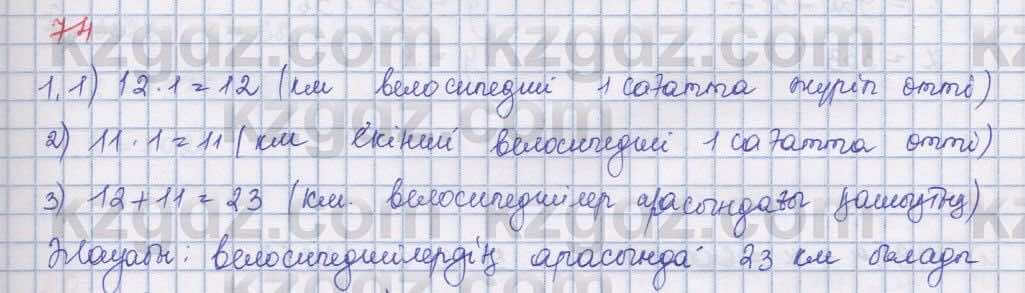 74
1. 1) 12 · 1 = 12 (км велосипедші 1 сағатта жүріп өтті)
2) 11 · 1 = 11 (км екінші велосипедші 1 сағатта өтті)
3) 12 + 11 = 23 (км. велосипедшілер арасындағы қашықтық)
Жауабы: велосипедшілердің арасында 23 км болады